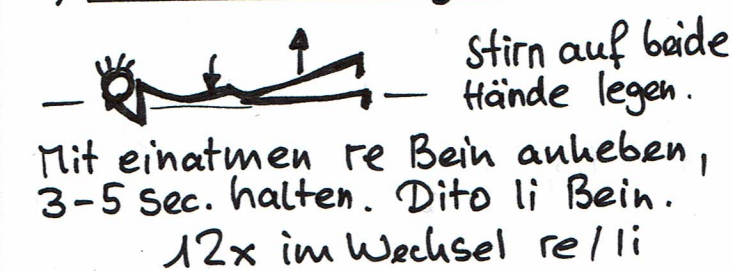 Stirn auf beide
Hände legen.
Mit einatmen re Bein anheben,
3-5 Sec. halten. Dito li Bein.
12x im Wechsel re/li